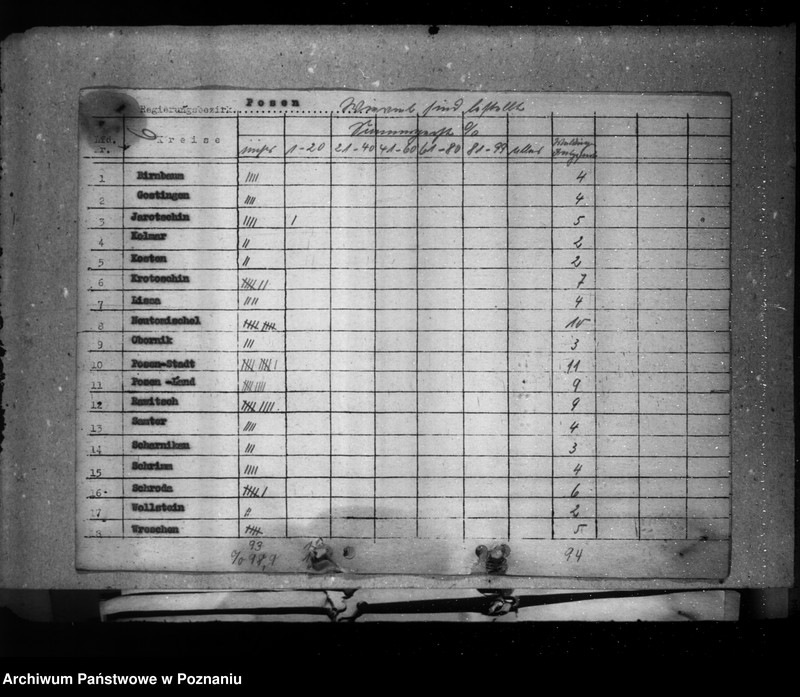 Regierungsbezirk Posen sind bestellt
Lfd. Nr. Kreise 1-20 21-40 41-60 61-80 81-99
1 Birnbaum |||| 4
2 Gostingen |||| 4
3 Jarotschin |||| | 5
4 Kolmar || 2
5 Kosten || 2
6 Krotoschin |||| || 7
7 Lissa |||| 4
8 Neutomischel 10
9 Obornik ||| 3
10 Posen-Stadt 11
11 Posen -Land 9
12 Rawitsch 9
13 Samter |||| 4
14 Scharnikau ||| 3
15 Schrimm |||| 4
16 Schroda 6
17 Wollstein || 2
18 Wreschen 5
93 94
% 98,9
Archiwum Państwowe w Poznaniu